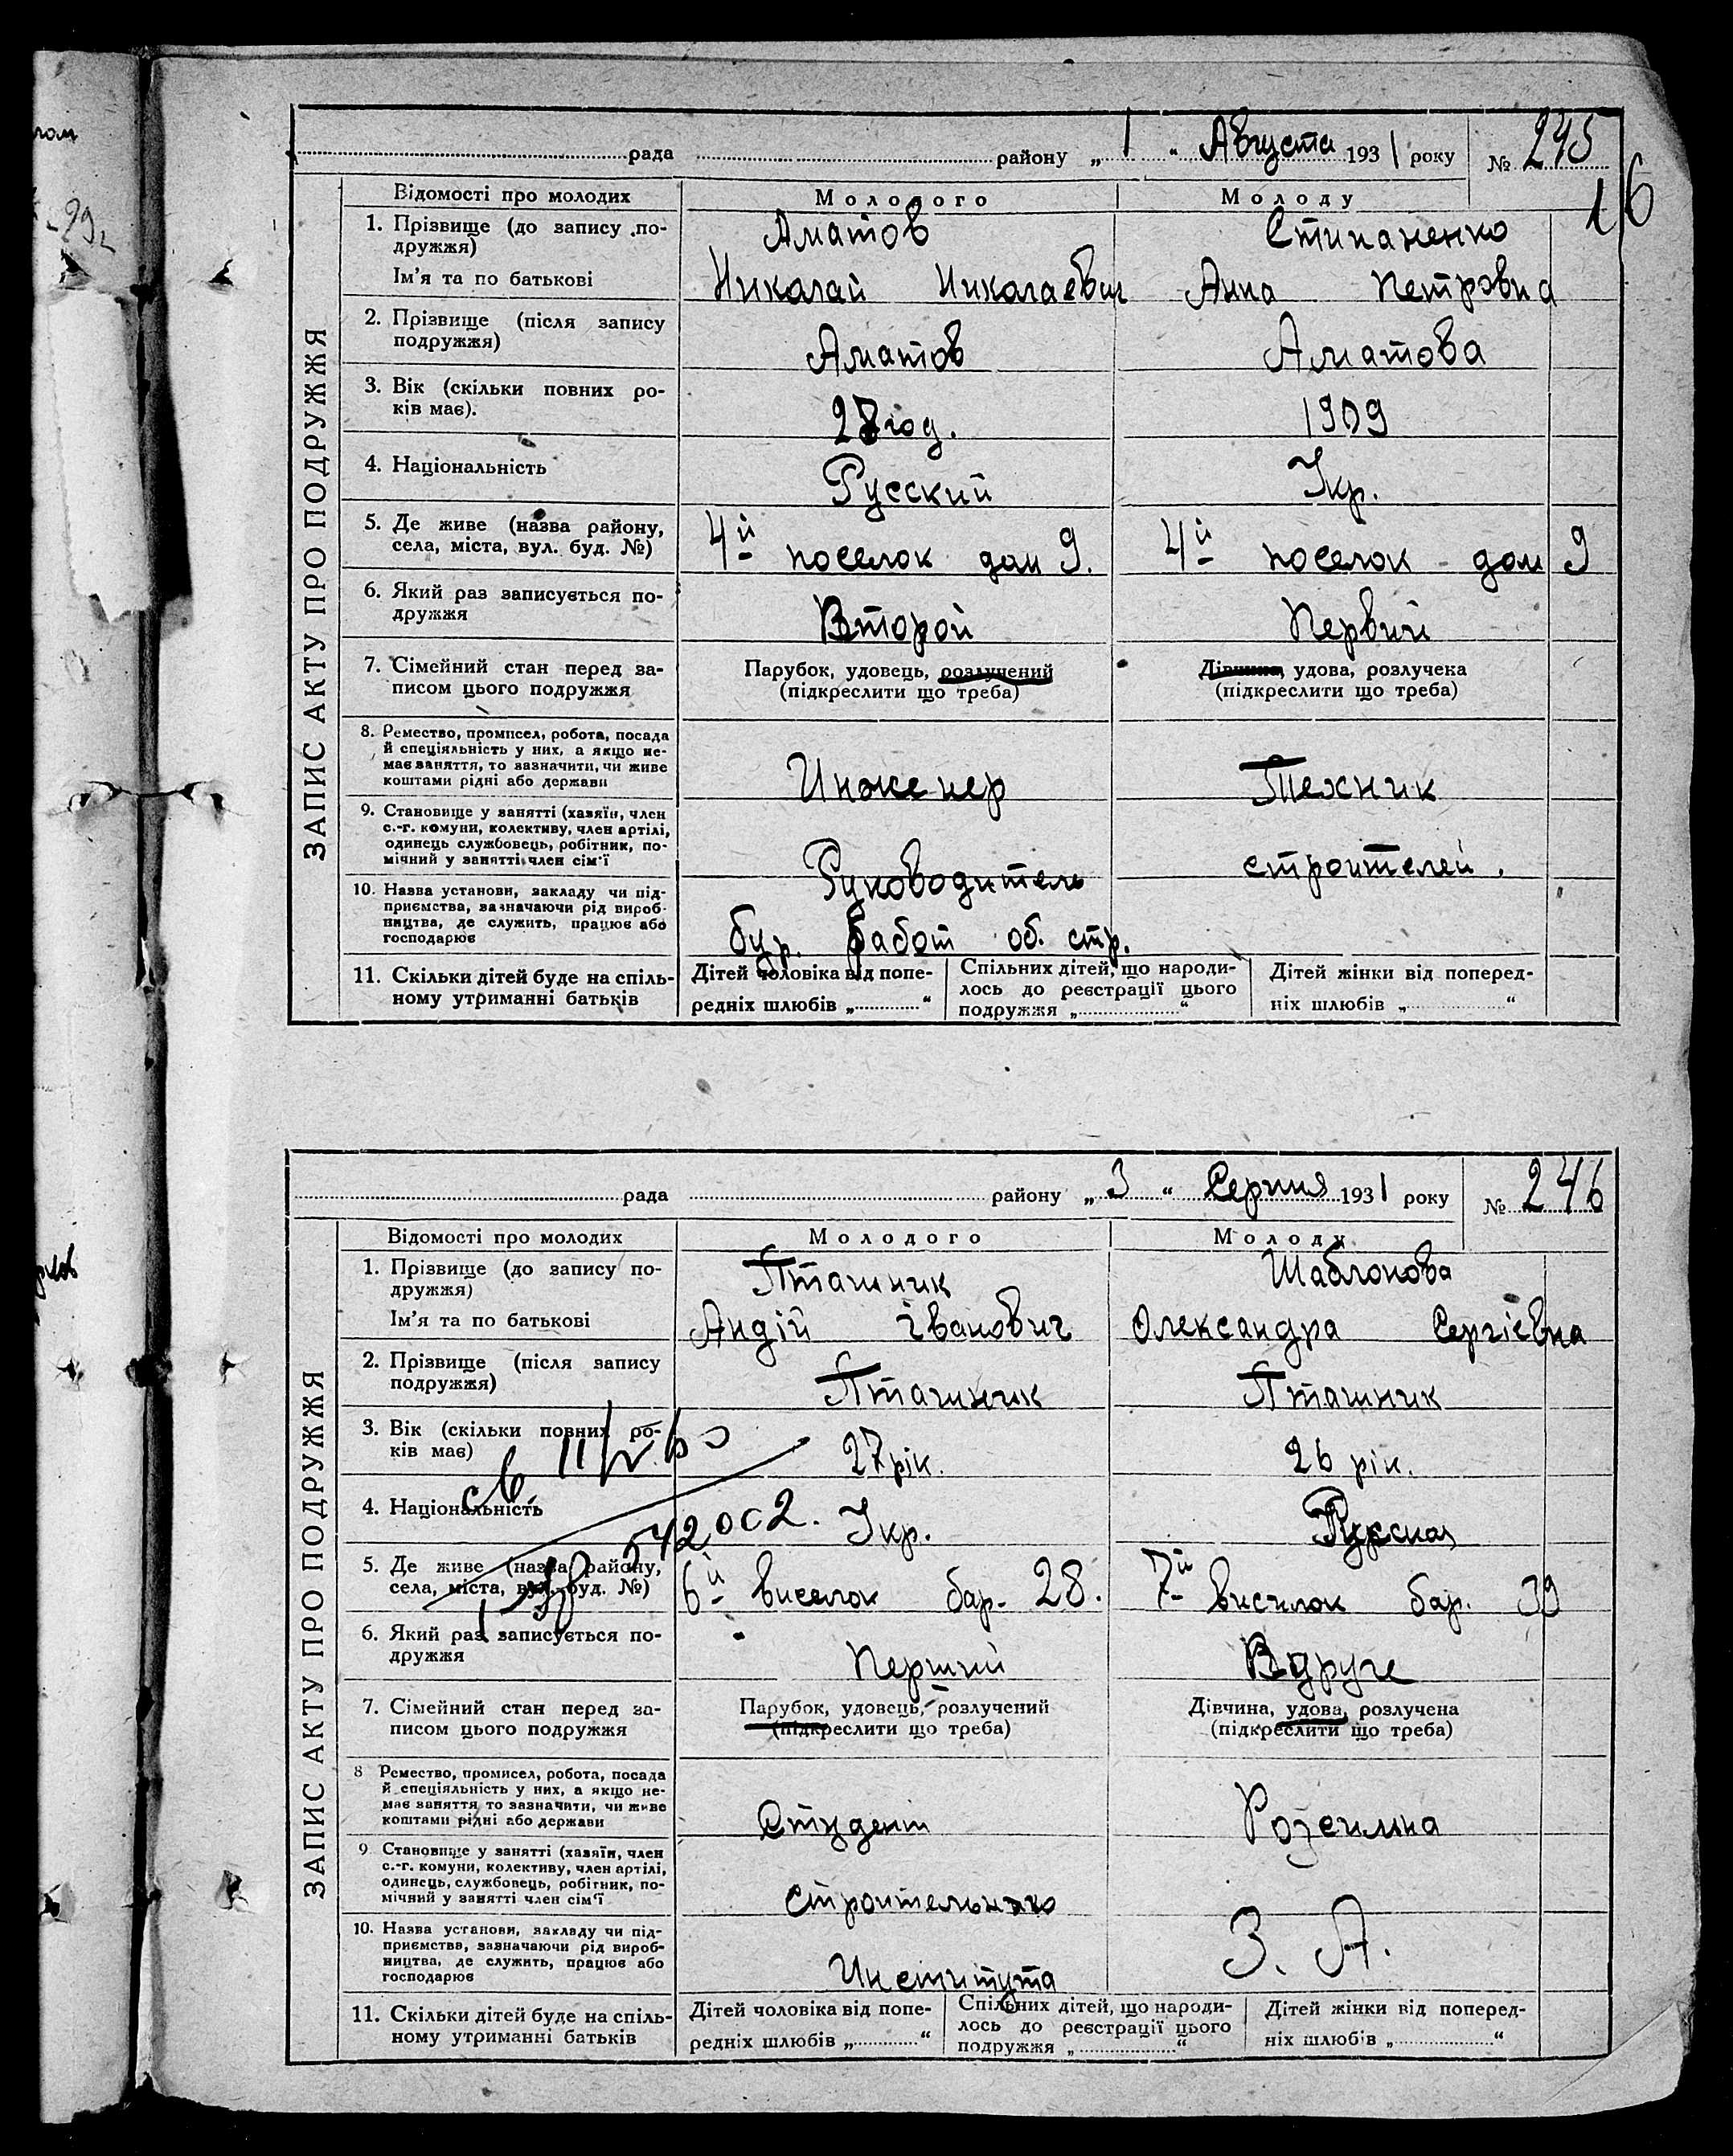 рада району „ 1 “ Августа 1931 року № 245
16
Відомості про молодих Молодого Молоду
ЗАПИС АКТУ ПРО ПОДРУЖЖЯ
1. Прізвище (до запису по-
дружжя) Аматов Стипаненко
Ім'я та по батькові Николай Николаевич Анна Петровна
2. Прізвище (після запису
подружжя) Аматов Аматова
3. Вік (скільки повних ро-
ків має). год. 1909
4. Національність Русский Укр.
5. Де живе (назва району,
села, міста, вул. буд. №) 4й поселок дом 9. 4й поселок дом 9
6. Який раз записується по-
дружжя Второй Первий
7. Сімейний стан перед за-
писом цього подружжя
Парубок, удовець, розлучений
(підкреслити що треба)
Дівчина, удова, розлучека
(підкреслити що треба)
8. Ремество, промисел, робота, посада
й спеціяльність у них, а якщо не-
має заняття, то зазначити, чи живе
коштами рідні або держави
Инженер Техник
9. Становище у занятті (хазяїн, член
с.-г. комуни, колективу, член артілі,
одинець службовець, робітник, по-
мічний у занятті член сім'ї
Руководитель строителей.
10. Назва установи, закладу чи під-
приємства, зазначаючи рід вироб-
ництва, де служить, працює або
господарює
бур. работ об. стр.
11. Скільки дітей буде на спіль-
ному утриманні батьків
Дітей чоловіка від попе-
редніх шлюбів „ “
Спільних дітей, що народи-
лось до реєстрації цього
подружжя „ “
Дітей жінки від поперед-
ніх шлюбів „ “
рада району „ 3 “ Серпня 1931 року № 246
Відомості про молодих Молодого Молоду
ЗАПИС АКТУ ПРО ПОДРУЖЖЯ
1. Прізвище (до запису по-
дружжя) Пташник Шаблонова
Ім'я та по батькові Андій Іванович Олександра Сергієвна
2. Прізвище (після запису
подружжя) Пташник Пташник
3. Вік (скільки повних ро-
ків має) 27 рік. 26 рік.
4. Національність Укр. Русская
5. Де живе (назва району,
села, міста, вул. буд. №) 6й виселок бар. 28. 7й висилок бар. 39
6. Який раз записується по-
дружжя Перший Вдруге
7. Сімейний стан перед за-
писом цього подружжя
Парубок, удовець, розлучений
(підкреслити що треба)
Дівчина, удова, розлучена
(підкреслити що треба)
8 Ремество, промисел, робота, посада
й спеціяльність у них, а якщо не-
має заняття то зазначити, чи живе
коштами рідні або держави
Студент Розсильна
9 Становище у занятті (хазяїн, член
с.-г. комуни, колективу, член артілі,
одинець, службовець, робітник, по-
мічний у занятті член сім'ї
строительного
10. Назва установи, закладу чи під-
приємства, зазначаючи рід вироб-
ництва, де служить, працює або
господарює
Института З. А.
11. Скільки дітей буде на спіль-
ному утриманні батьків
Дітей чоловіка від попе-
редніх шлюбів „ “
Спільних дітей, що народи-
лось до реєстрації цього
подружжя „ “
Дітей жінки від поперед-
ніх шлюбів „ “